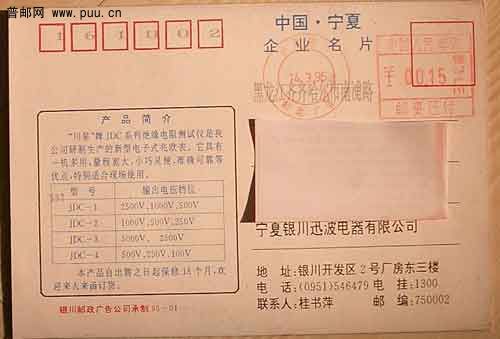 普邮网
www.puu.cn
161002
中国·宁夏
企业名片
24.3.95
中国人民邮政
￥0015
邮资已付
黑龙江齐齐哈尔市南浦路
产品简介
JDC系列绝缘电阻测试仪是我
公司研制生产的新型电子式兆欧表。它具有
一机多用,量程宽大,小巧灵便,准确可靠等
优点,特别适合现场使用。
型号 输出电压档位
JDC-1 2500V,1000V,500V
JDC-2 1000V,500V,250V
JDC-3 5000V, 2500V
JDC-4 500V,250V,100V
本产品自出售之日起保修18个月,欢
迎来人来函订货。
银川邮政广告公司承制 95-01
宁夏银川迅波电器有限公司
地 址:银川开发区2号厂房东三楼
电 话:(0951)546479 电 挂:1300
联系人:桂书萍 邮 编:750002